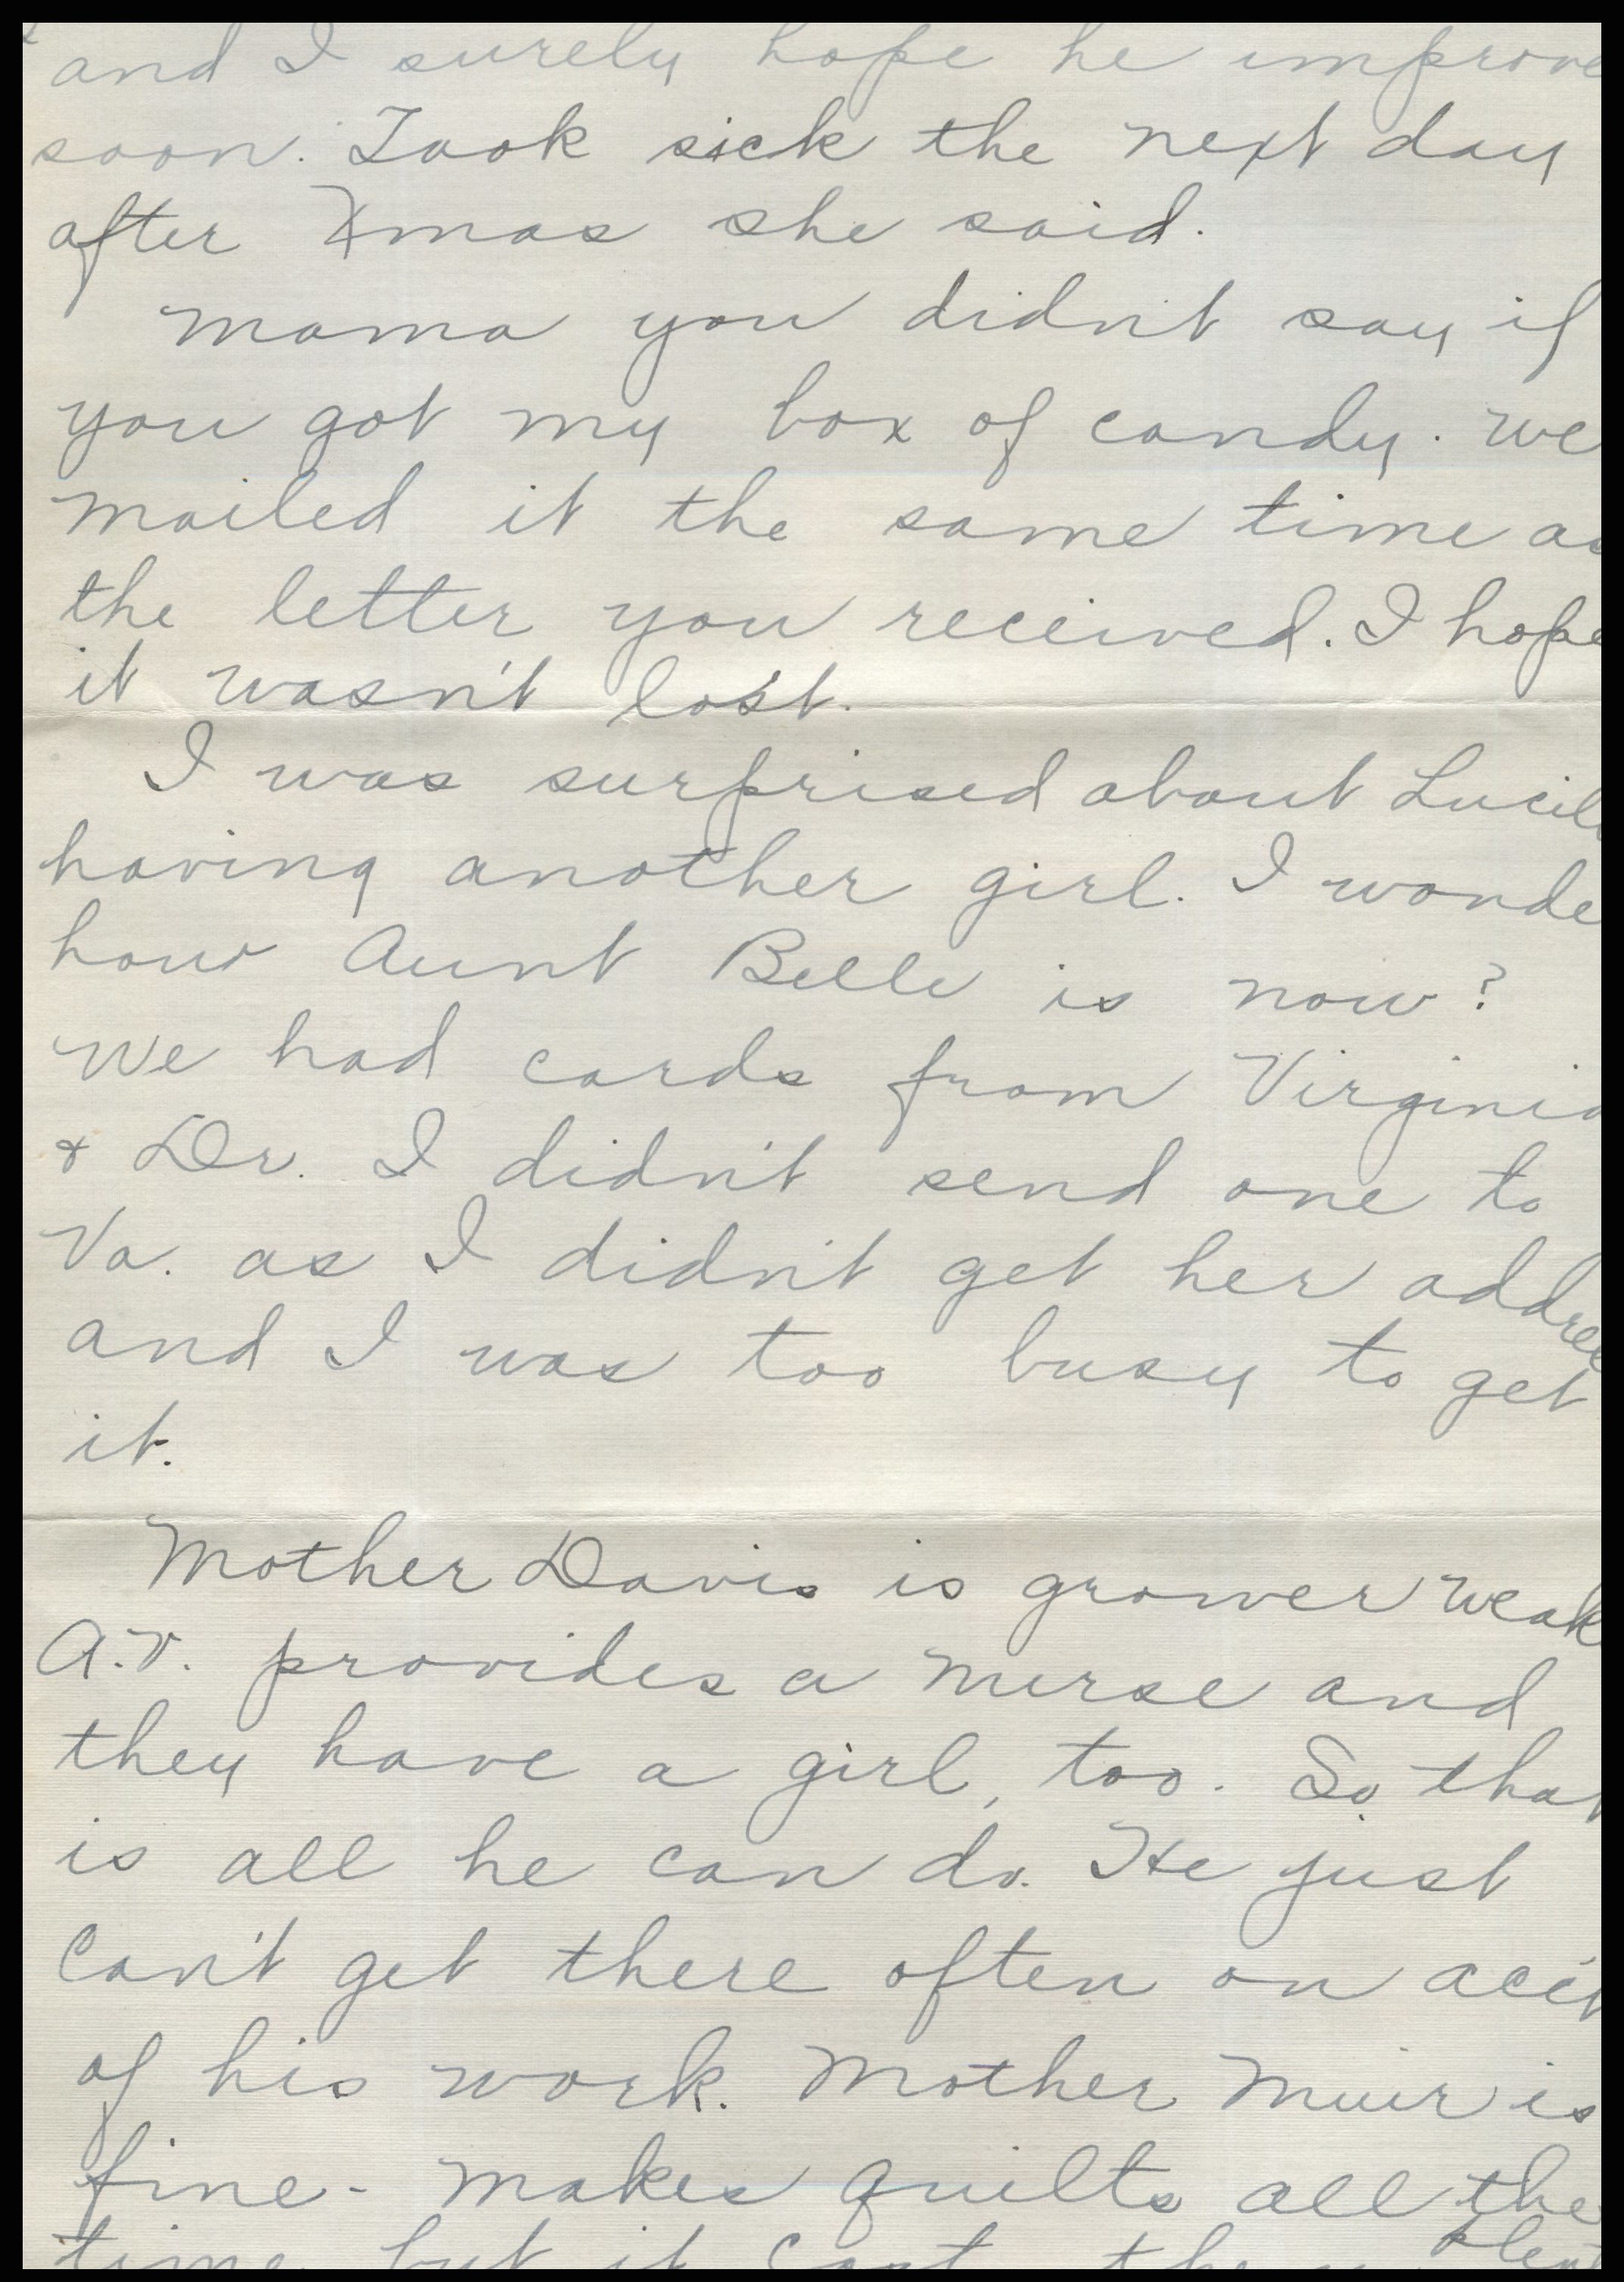 and I surely hope he improve
soon. Took sick the next day
after Xmas she said.
Mama you didn't say if
you got my box of candy. We
mailed it the same time as
the letter you received. I hope
it wasn't lost.
I was surprised about Lucill
having another girl. I wonde
how Aunt Belle is now?
We had cards from Virginia
& Dr. I didn't send one to
Va. as I didn't get her addres
and I was too busy to get
it.
Mother Davis is grower weak
A.V. provides a nurse and
they have a girl, too. So that
is all he can do. He just
can't get there often on acc't
of his work. Mother Muir is
fine - makes quilts all the
time but it cost them plent